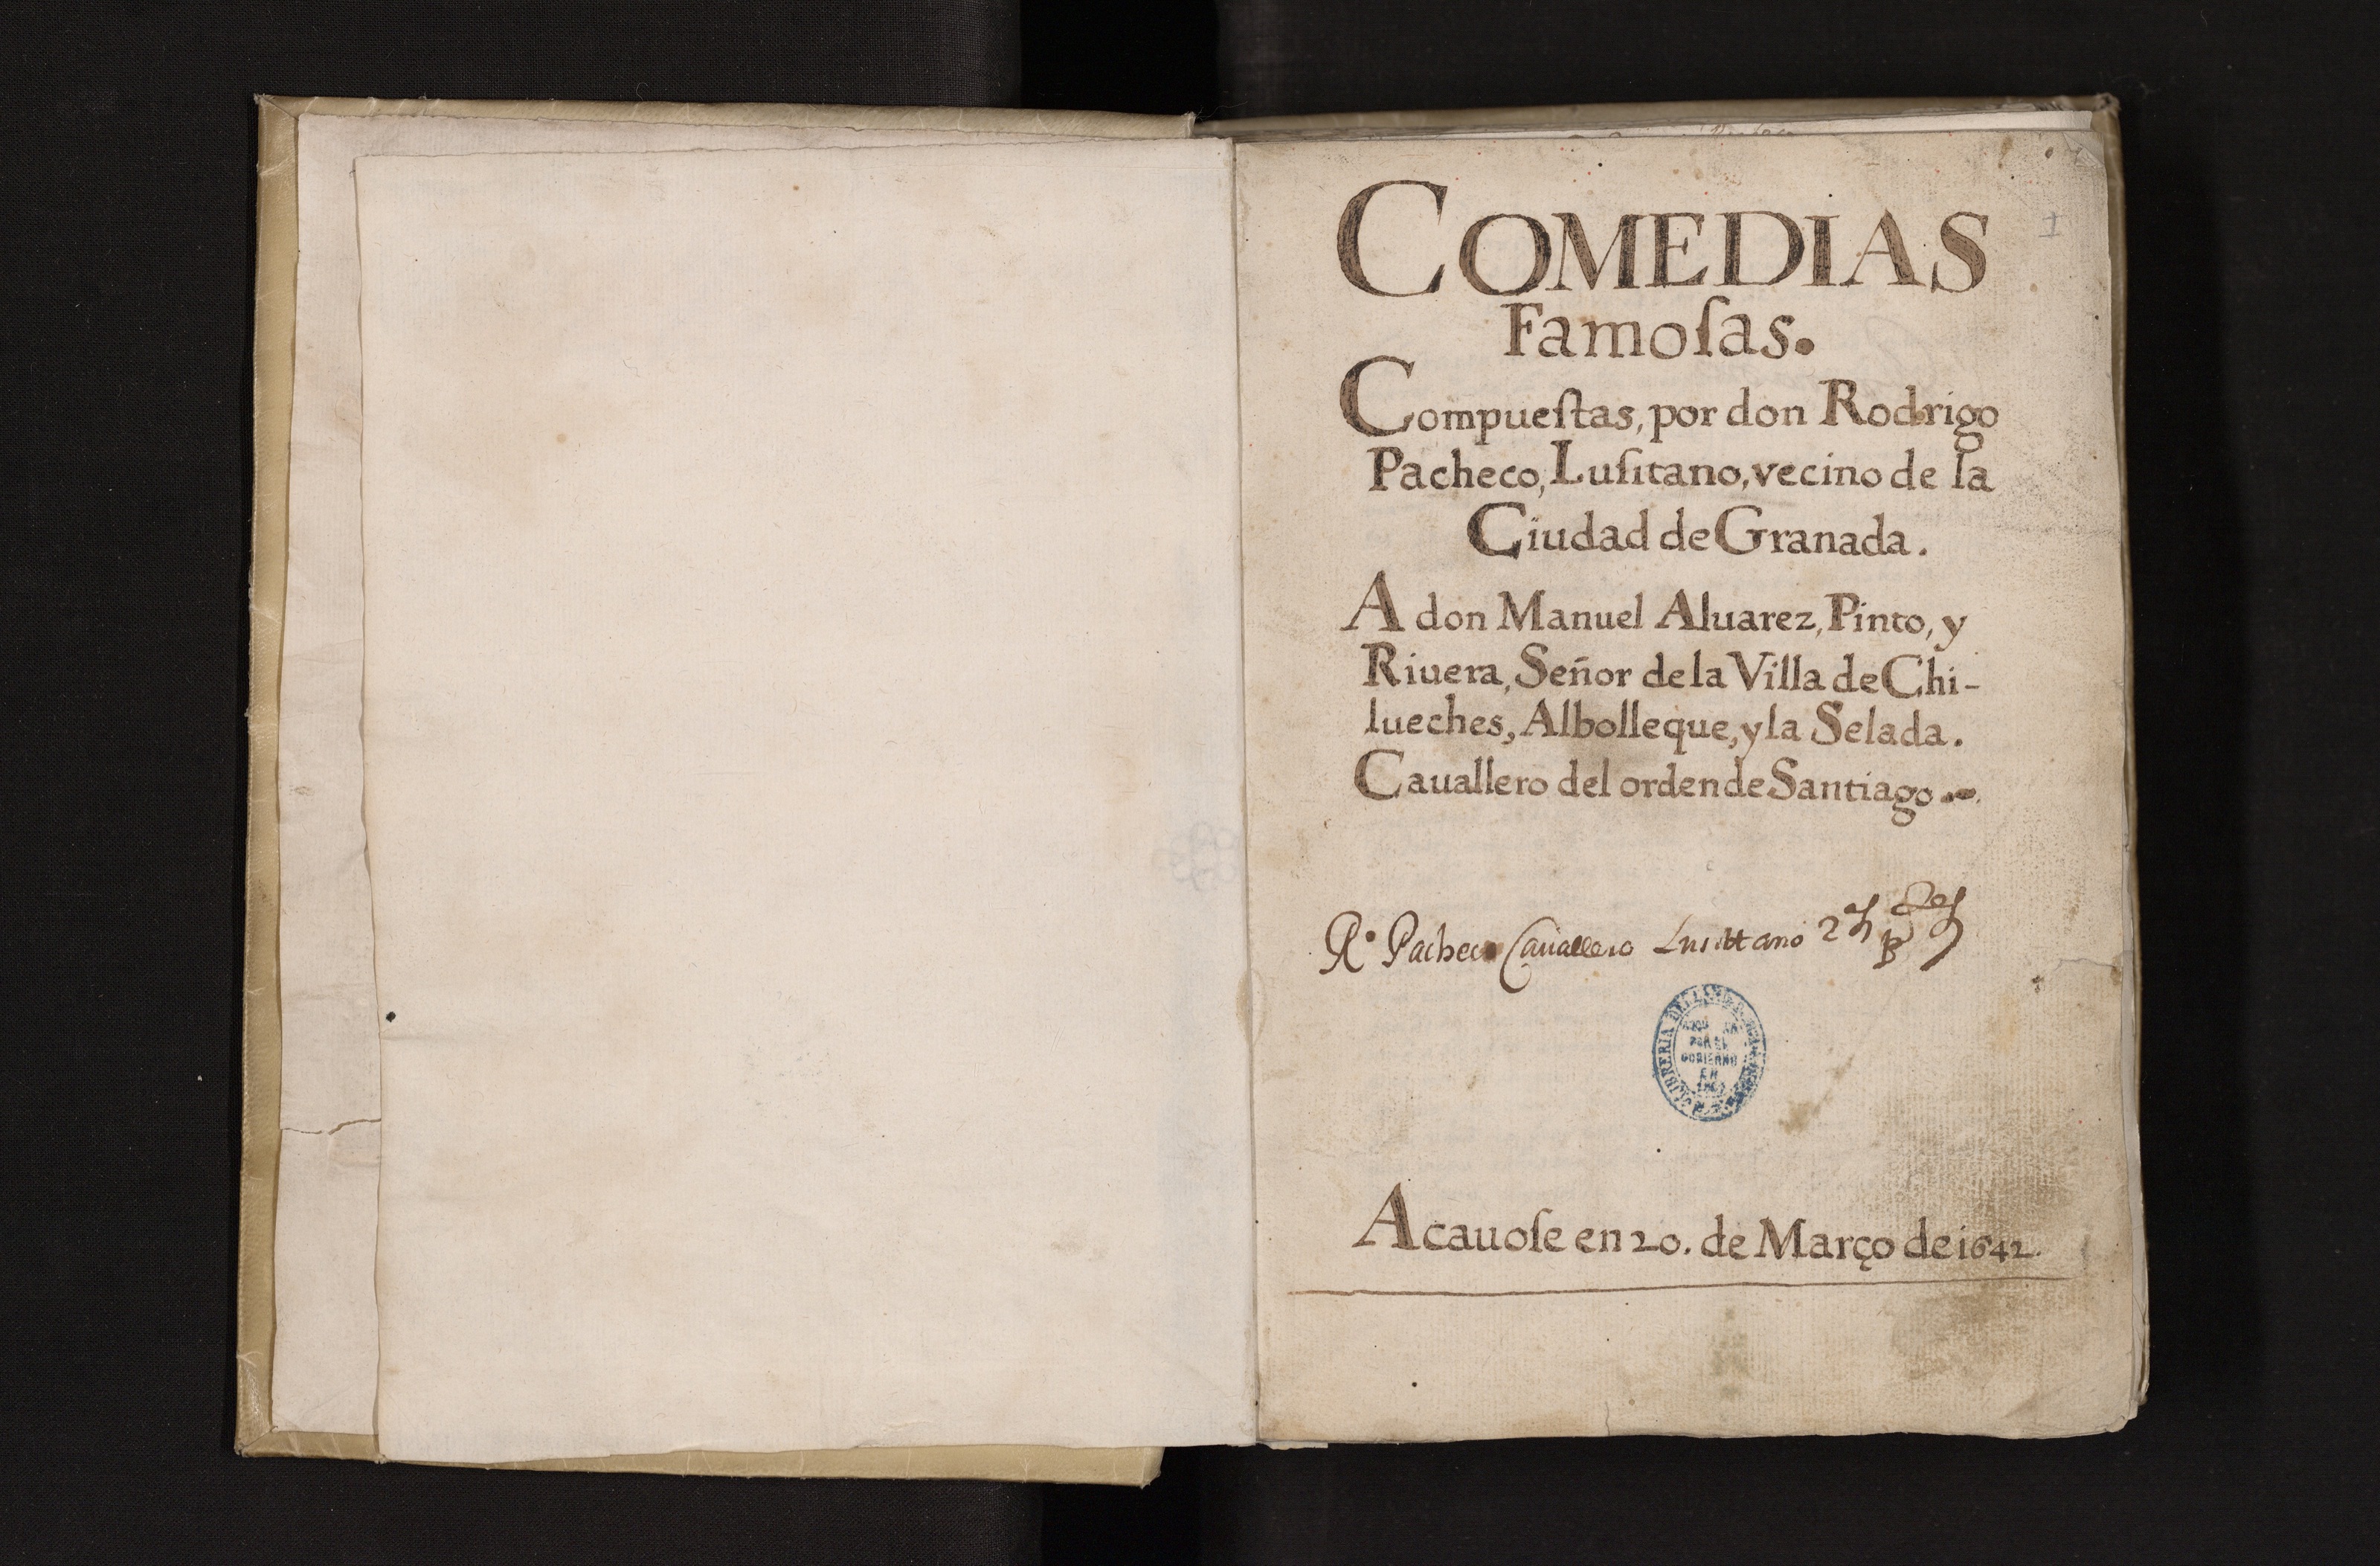 COMEDIAS
Famoſas.
Compueſtas, por don Rodrigo
Pacheco, Luſitano, vecino de la
Ciudad de Granada.
A don Manuel Aluarez, Pinto, y
Riuera, Señor de la Villa de Chi-
lueches, Albolleque, y la Selada.
Cauallero del orden de Santiago
Rº Pacheco Cauallero Lusittano
POR EL
GOBIERNO
EN
Acauoſe en 20. de Março de 1642.